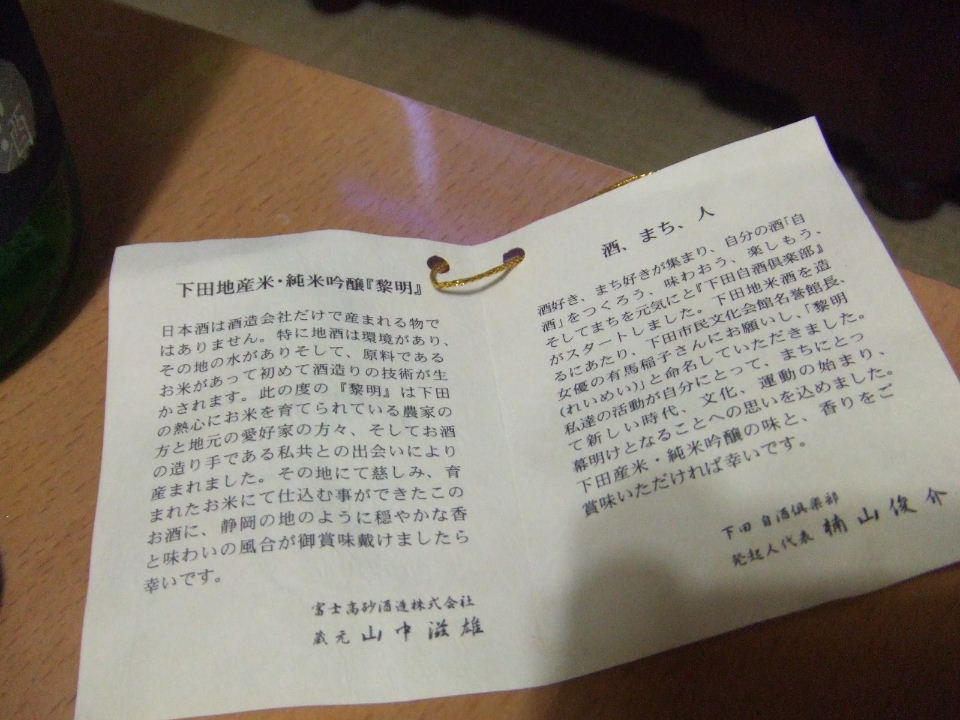 下田地産米・純米吟醸『黎明』
日本酒は酒造会社だけで産まれる物で
はありません。特に地酒は環境があり、
その地の水がありそして、原料である
お米があって初めて酒造りの技術が生
かされます。此の度の『黎明』は下田
の熱心にお米を育てられている農家の
方と地元の愛好家の方々、そしてお酒
の造り手である私共との出会いにより
産まれました。その地にて慈しみ、育
まれたお米にて仕込む事ができたこの
お酒に、静岡の地のように穏やかな香
と味わいの風合が御賞味戴けましたら
幸いです。
富士高砂酒造株式会社
蔵元 山中滋雄
酒、まち、人
酒好き、まち好きが集まり、自分の酒「自
酒」をつくろう、味わおう、楽しもう、
そしてまちを元気にと『下田自酒倶楽部』
がスタートしました。下田地米酒を造
るにあたり、下田市民文化会館名誉館長、
女優の有馬稲子さんにお願いし、「黎明
(れいめい)」と命名していただきました。
私達の活動が自分にとって、まちにとっ
て新しい時代、文化、運動の始まり、
幕明けとなることへの思いを込めました。
下田産米・純米吟醸の味と、香りをご
賞味いただければ幸いです。
下田自酒倶楽部
発起人代表 楠山俊介
酒